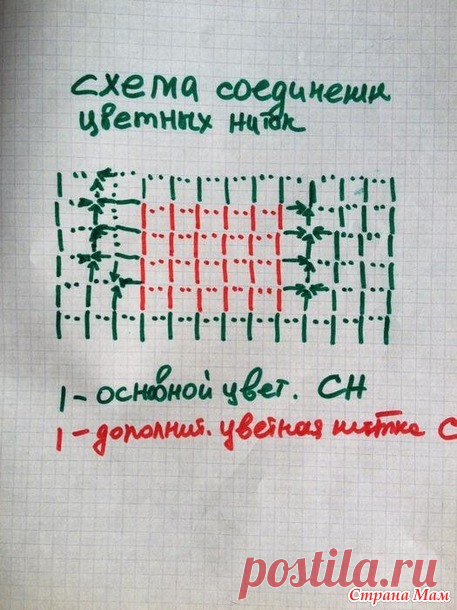 схема соединени
цветных ниток
| - основной цвет. СН
| - дополнит. цветная нитка С
postila.ru
Страна Мам